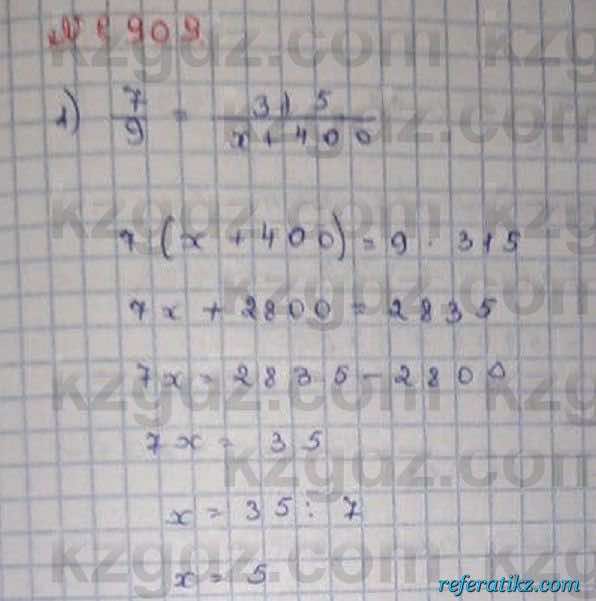 № 909
1) 7/9 = 315/(x + 400)
7(x + 400) = 9 · 315
7x + 2800 = 2835
7x = 2835 - 2800
7x = 35
x = 35 : 7
x = 5
kzgdz.com
referatikz.com